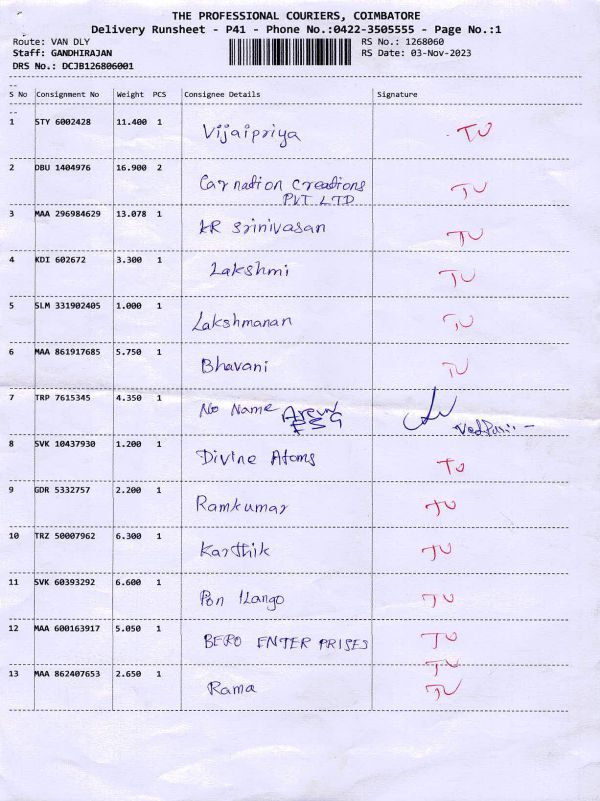 THE PROFESSIONAL COURIERS, COIMBATORE
Delivery Runsheet - P41 - Phone No.:0422-3505555 - Page No.:1
Route: VAN DLY RS No.: 1268060
Staff: GANDHIRAJAN RS Date: 03-Nov-2023
DRS No.: DCJB126806001
--
S No Consignment No Weight PCS Consignee Details Signature
--
1 STY 6002428 11.400 1 Vijaipriya TU
2 DBU 1404976 16.900 2 Carnation Creations TU
PVT LTD
3 MAA 296984629 13.078 1 KR Srinivasan TU
4 KDI 602672 3.300 1 Lakshmi TU
5 SLM 331902405 1.000 1 Lakshmanan TU
6 MAA 861917685 5.750 1 Bhavani TU
7 TRP 7615345 4.350 1 No Name Arun
PSG
8 SVK 10437930 1.200 1 Divine Atoms TU
9 GDR 5332757 2.200 1 Ramkumar TU
10 TRZ 50007962 6.300 1 Karthik TU
11 SVK 60393292 6.600 1 Pon Ilango TU
12 MAA 600163917 5.050 1 BERO ENTERPRISES TU
TU
13 MAA 862407653 2.650 1 Rama TU